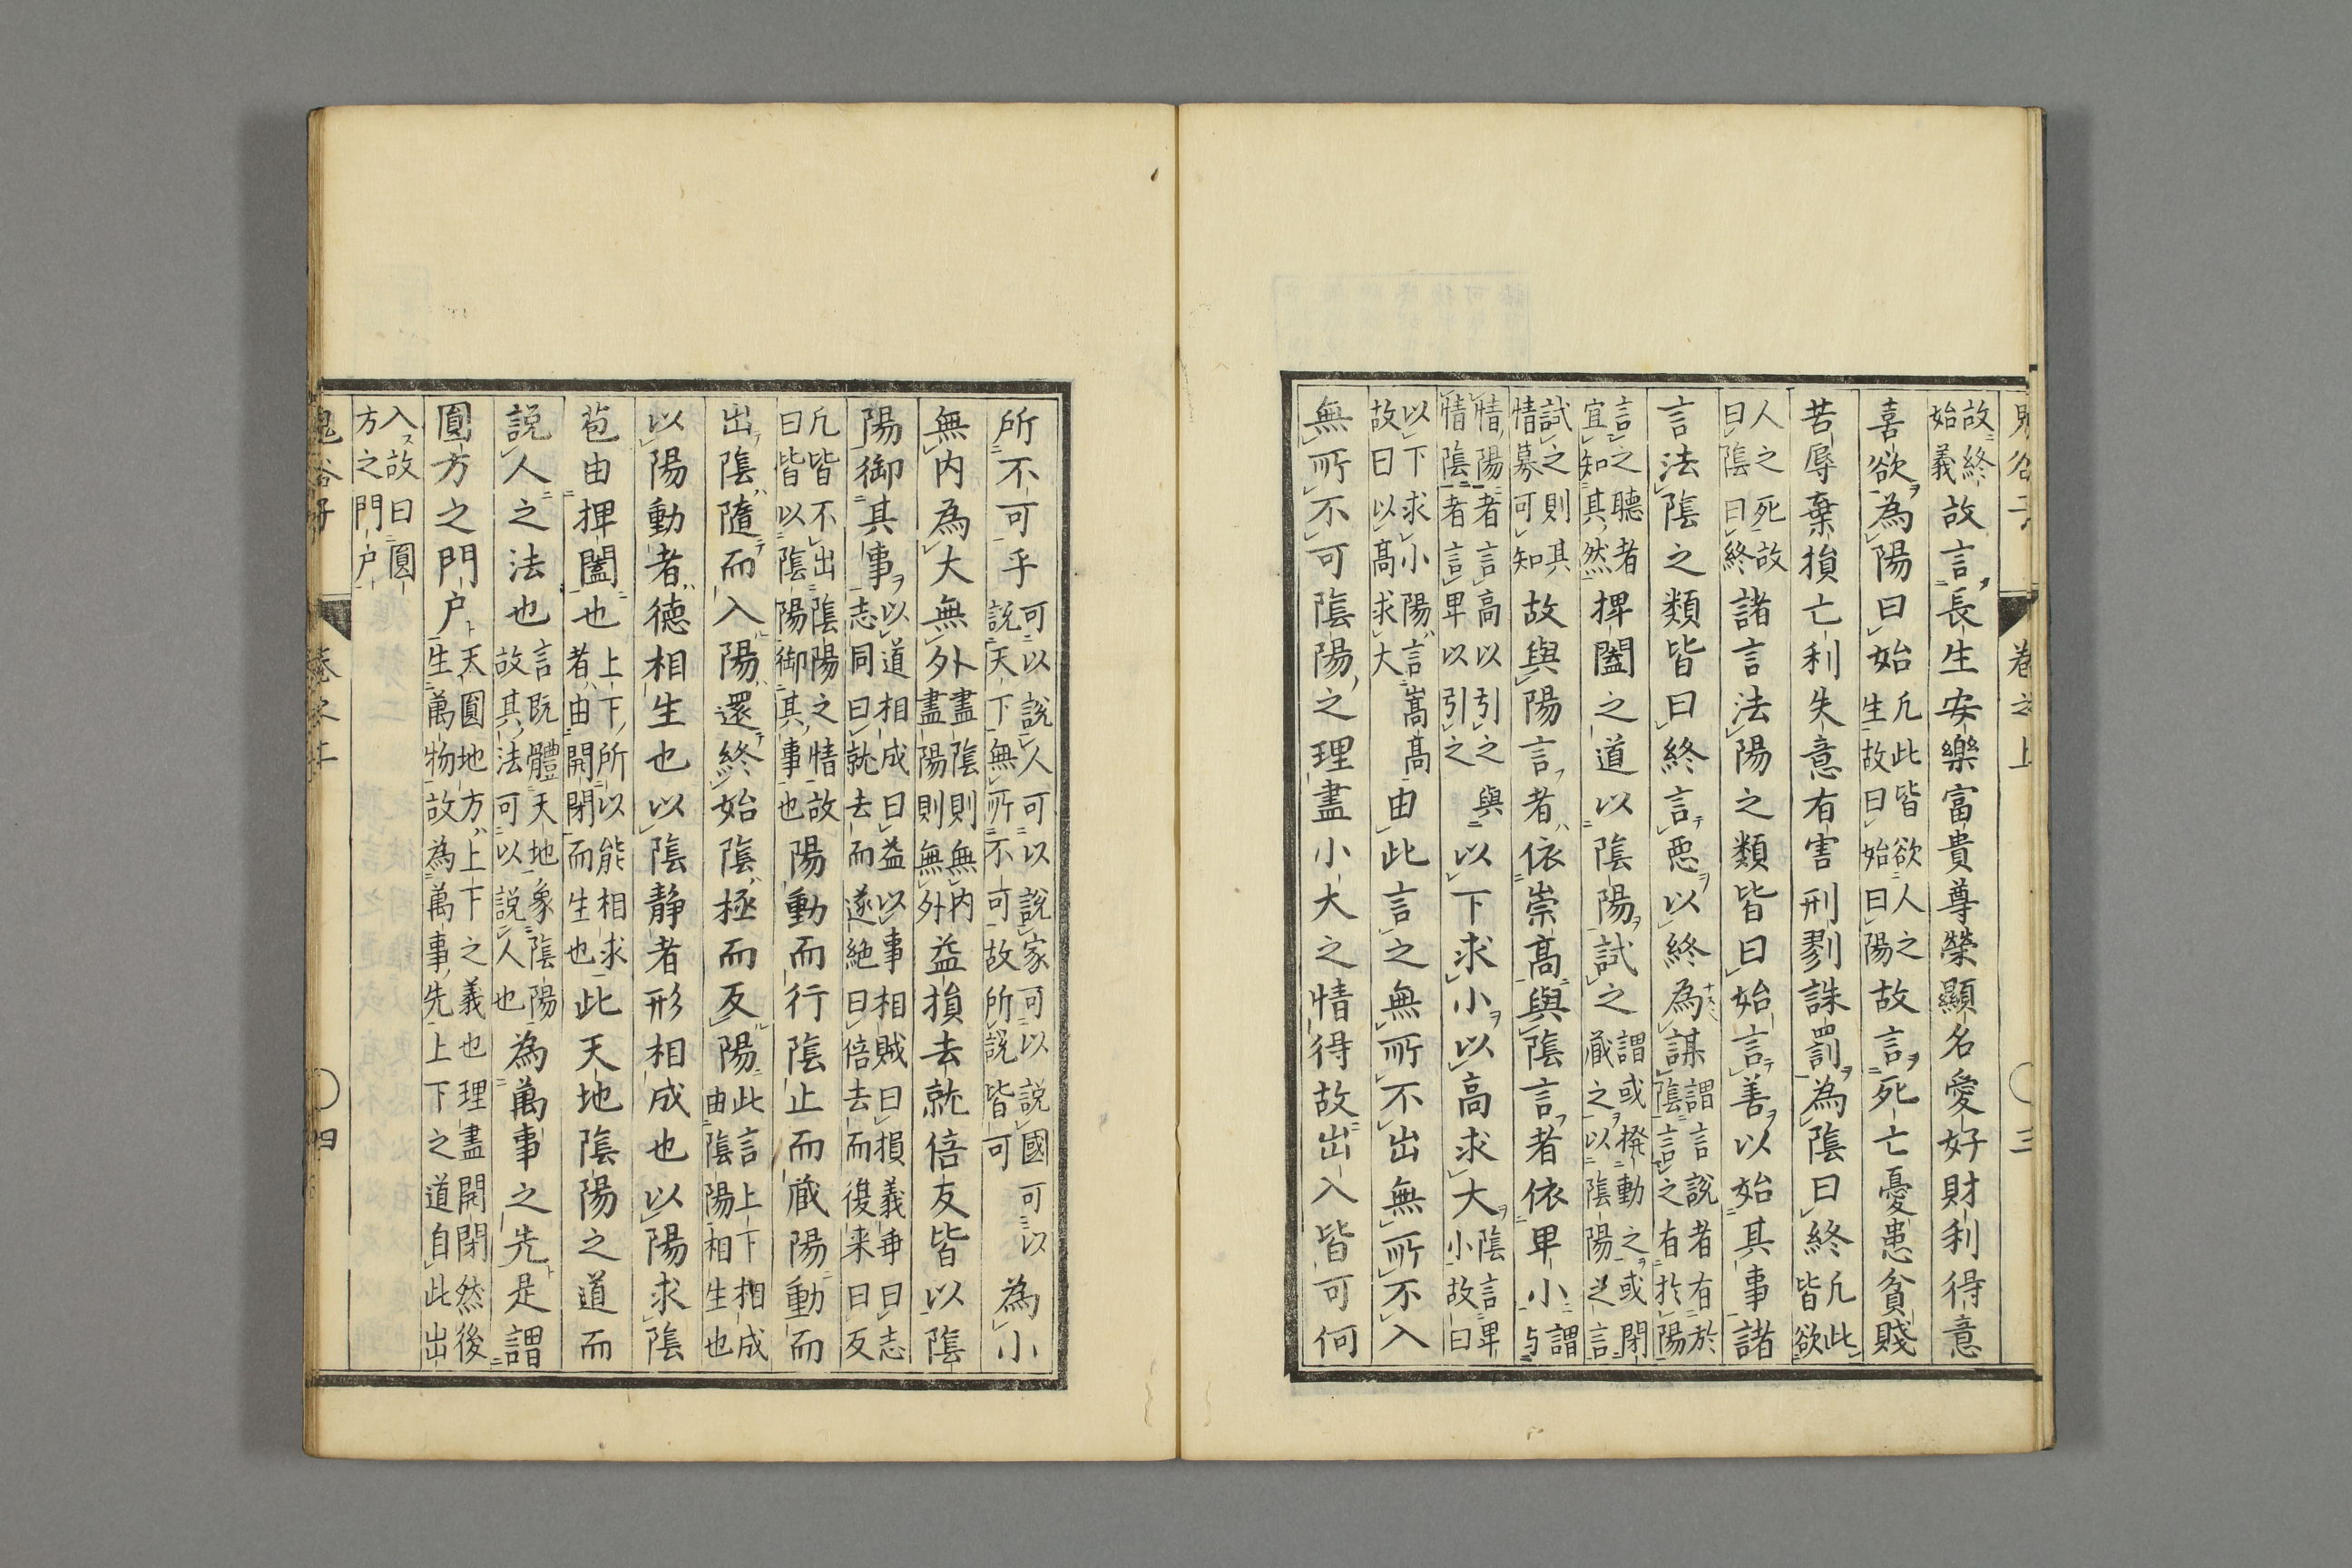 鬼谷子 卷之上 三
故終始義故言長生安樂富貴尊榮顯名愛好財利得意
喜欲為陽曰始凡此皆欲人之生故曰始曰陽故言死亡憂患貧賤
苦辱棄損亡利失意有害刑剹誅罰為陰曰終凡此皆欲
人之死故曰陰曰終諸言法陽之類皆曰始言善以始其事諸
言法陰之類皆曰終言惡以終為謀謂言說者有於陰言之有於陽
言之聽者宜知其然捭闔之道以陰陽試之謂或撥動之或閉藏之以陰陽之言
試之則其情慕可知故與陽言者依崇高與陰言者依卑小謂与
情陽者言高以引之與情陰者言卑以引之以下求小以高求大陰言卑小故曰
以下求小陽言嵩高故曰以高求大由此言之無所不出無所不入
無所不可陰陽之理盡小大之情得故出入皆可何
所不可乎可以說人可以說家可以說國可以說天下無所不可故所說皆可為小
無內為大無外盡陰則無內盡陽則無外益損去就倍反皆以陰
陽御其事以道相成曰益以事相賊曰損義乖曰志志同曰就去而遂絕曰倍去而復来曰反
凡皆不出陰陽之情故曰皆以陰陽御其事也陽動而行陰止而藏陽動而
出陰隨而入陽還終始陰極而反陽此言上下相成由陰陽相生也
以陽動者德相生也以陰靜者形相成也以陽求陰
苞由捭闔也上下所以能相求者由開閉而生也此天地陰陽之道而
說人之法也言既體天地象陰陽故其法可以說人也為萬事之先是謂
圓方之門户天圓地方上下之義也理盡開閉然後生萬物故為萬事先上下之道自此出
入故曰圓方之門户
鬼谷子 卷之上 四